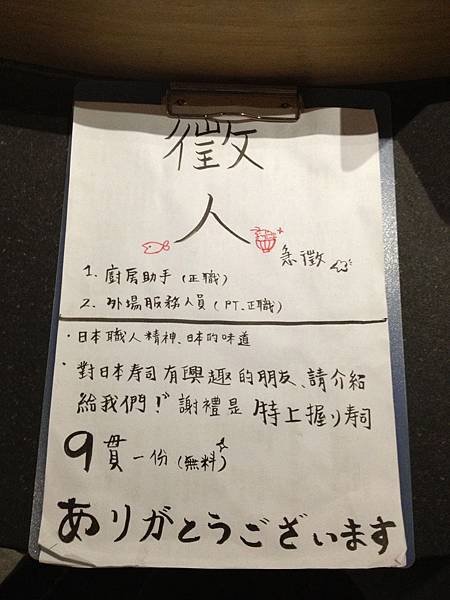 徵
人
急徵
1. 廚房助手(正職)
2. 外場服務人員(PT.正職)
・日本職人精神、日本的味道
・對日本寿司有興趣的朋友、請介紹
給我們!! 謝禮是 特上握り寿司
9貫一份(無料)
ありがとうございます